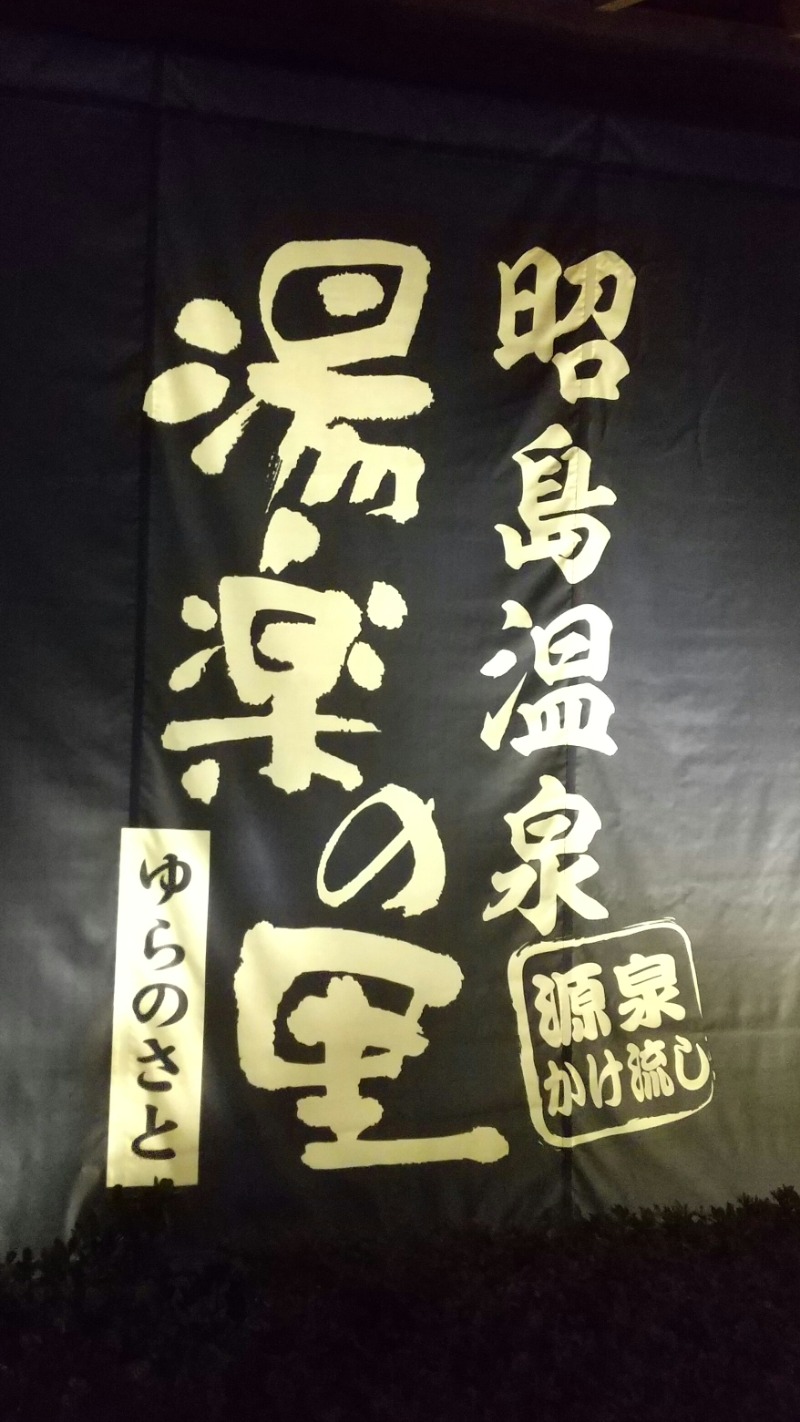 昭島温泉
源泉
かけ流し
湯楽の里
ゆらのさと